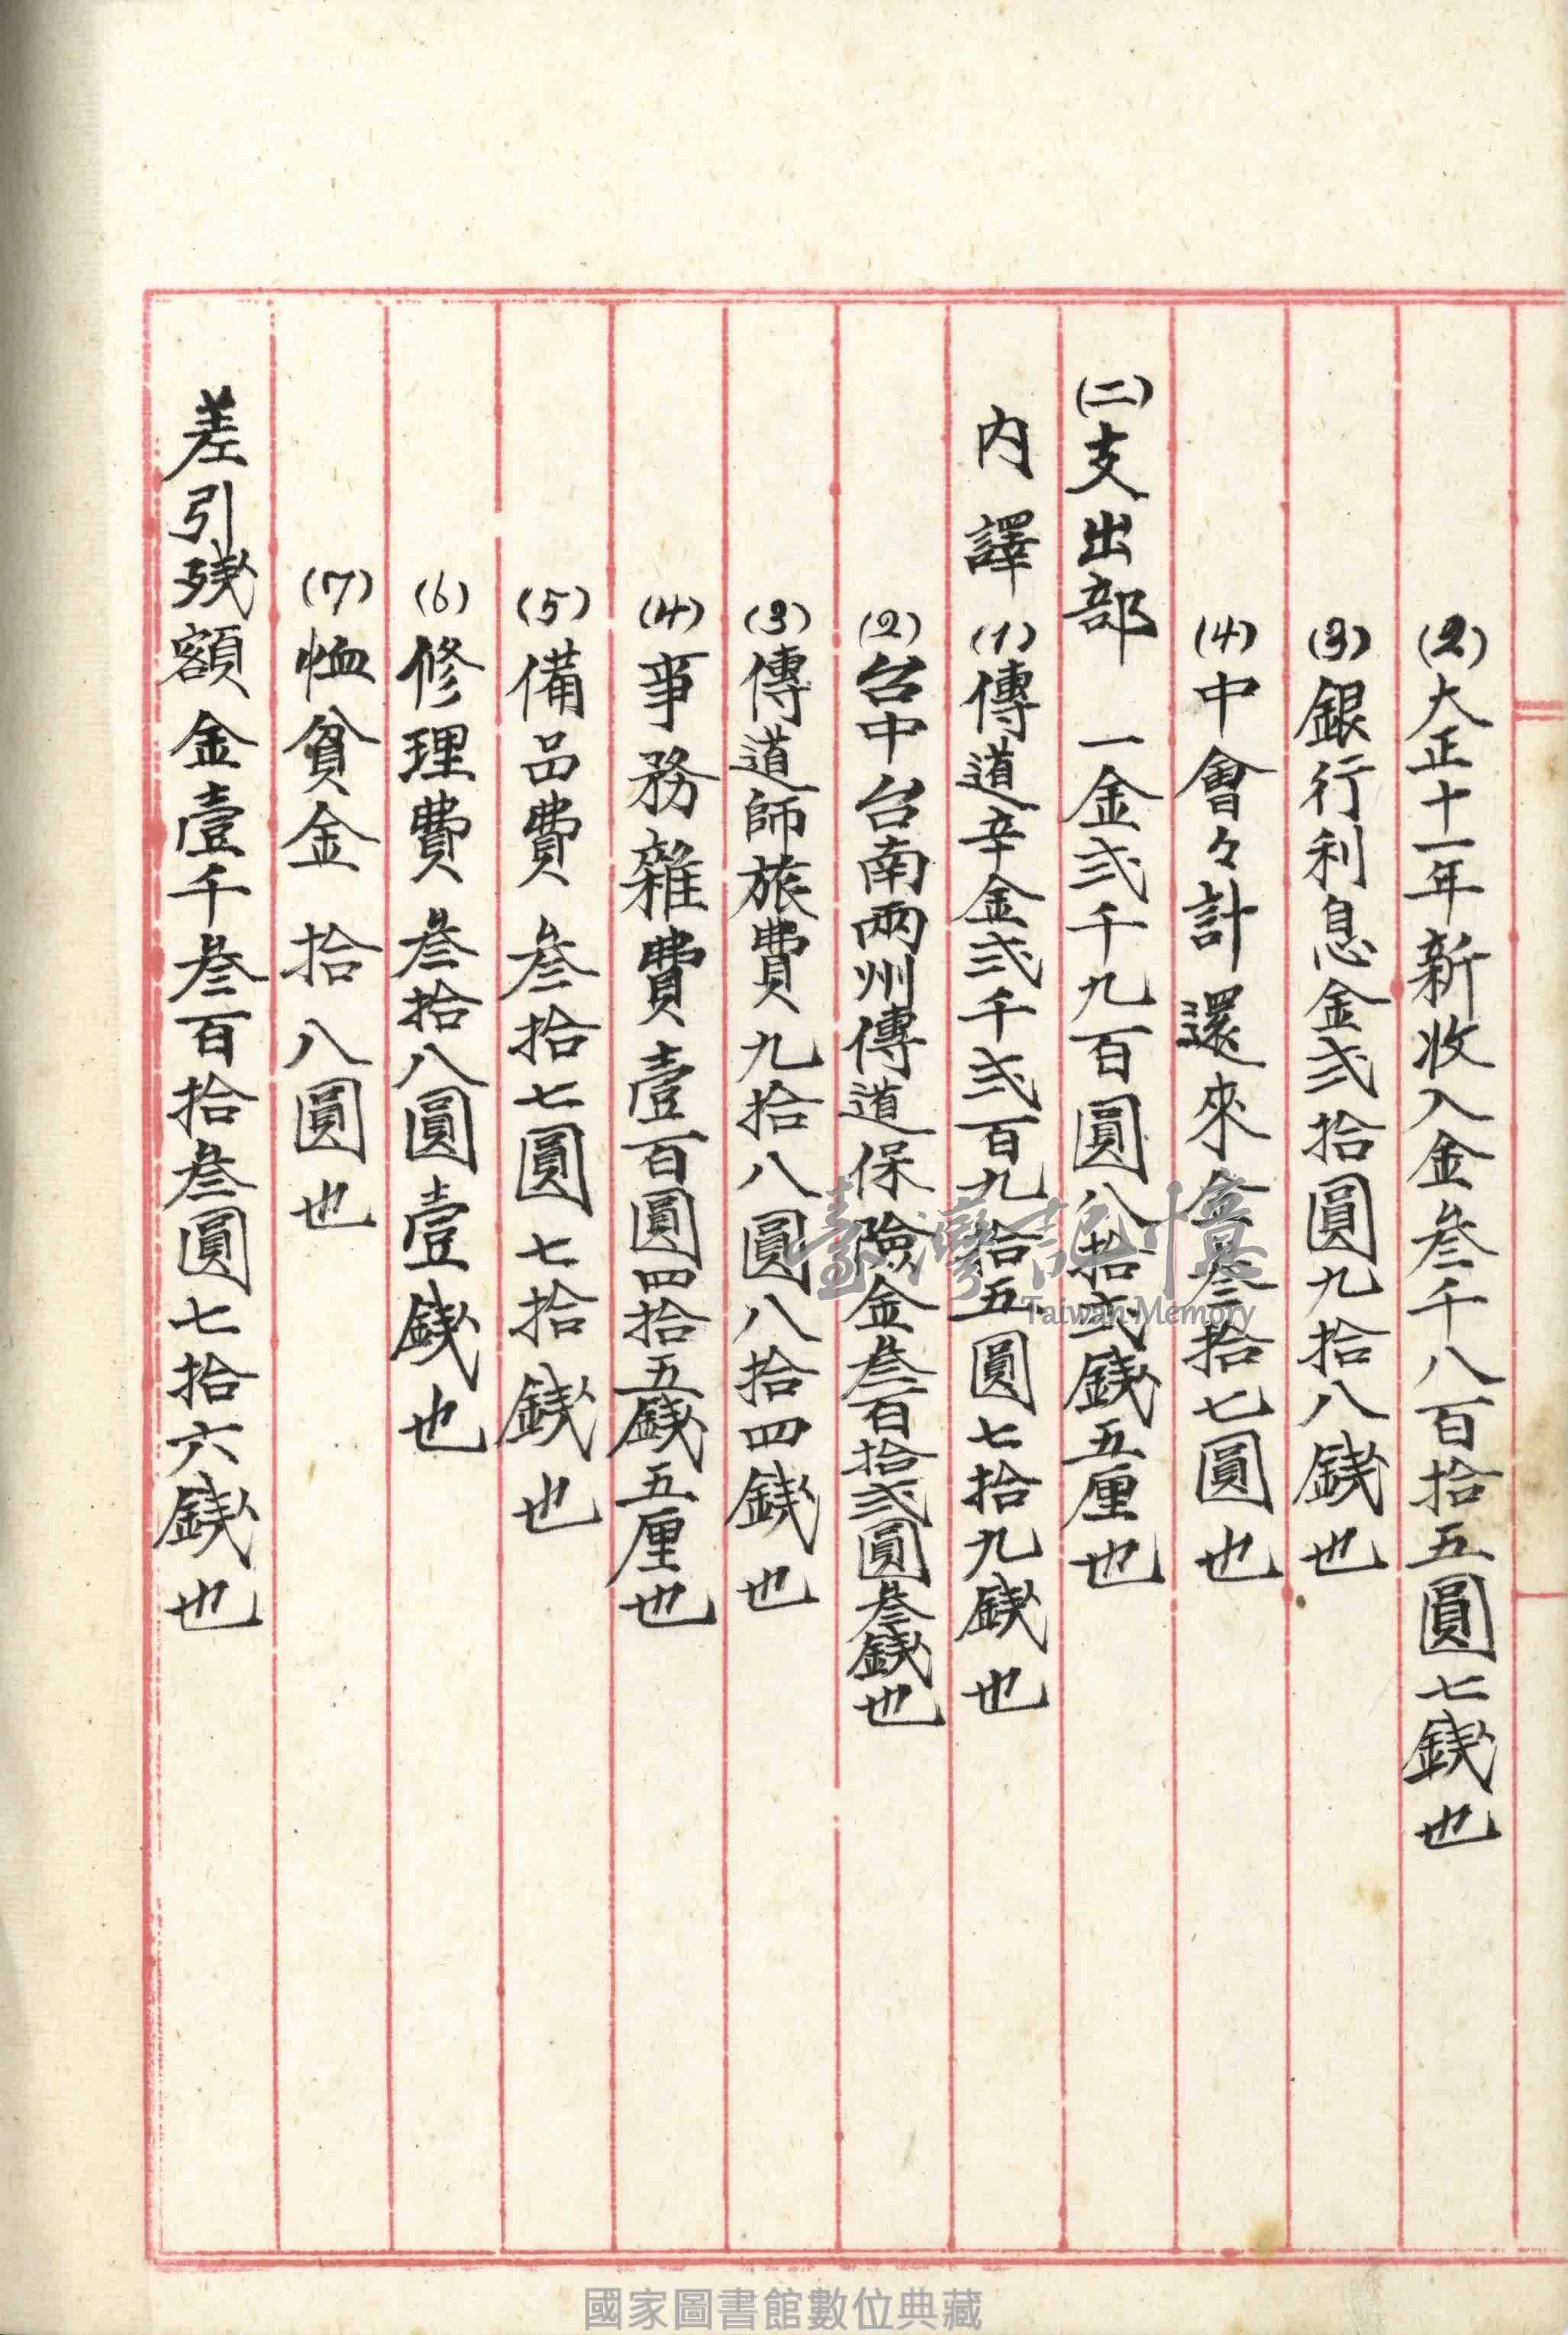 (2)大正十一年新收入金叁千八百拾五圓七錢也
(3)銀行利息金弍拾圓九拾八錢也
(4)中會々計還來金叁拾七圓也
(二)支出部 一金弍千九百圓八拾弍錢五厘也
內譯 (1)傳道辛金弍千弍百九拾五圓七拾九錢也
(2)台中台南兩州傳道保險金叁百拾弍圓叁錢也
(3)傳道師旅費九拾八圓八拾四錢也
(4)事務雜費壹百圓四拾五錢五厘也
(5)備品費 叁拾七圓七拾錢也
(6)修理費 叁拾八圓壹錢也
(7)恤貧金 拾八圓也
差引残額金壹千叁百拾叁圓七拾六錢也
臺灣記憶
Taiwan Memory
國家圖書館數位典藏